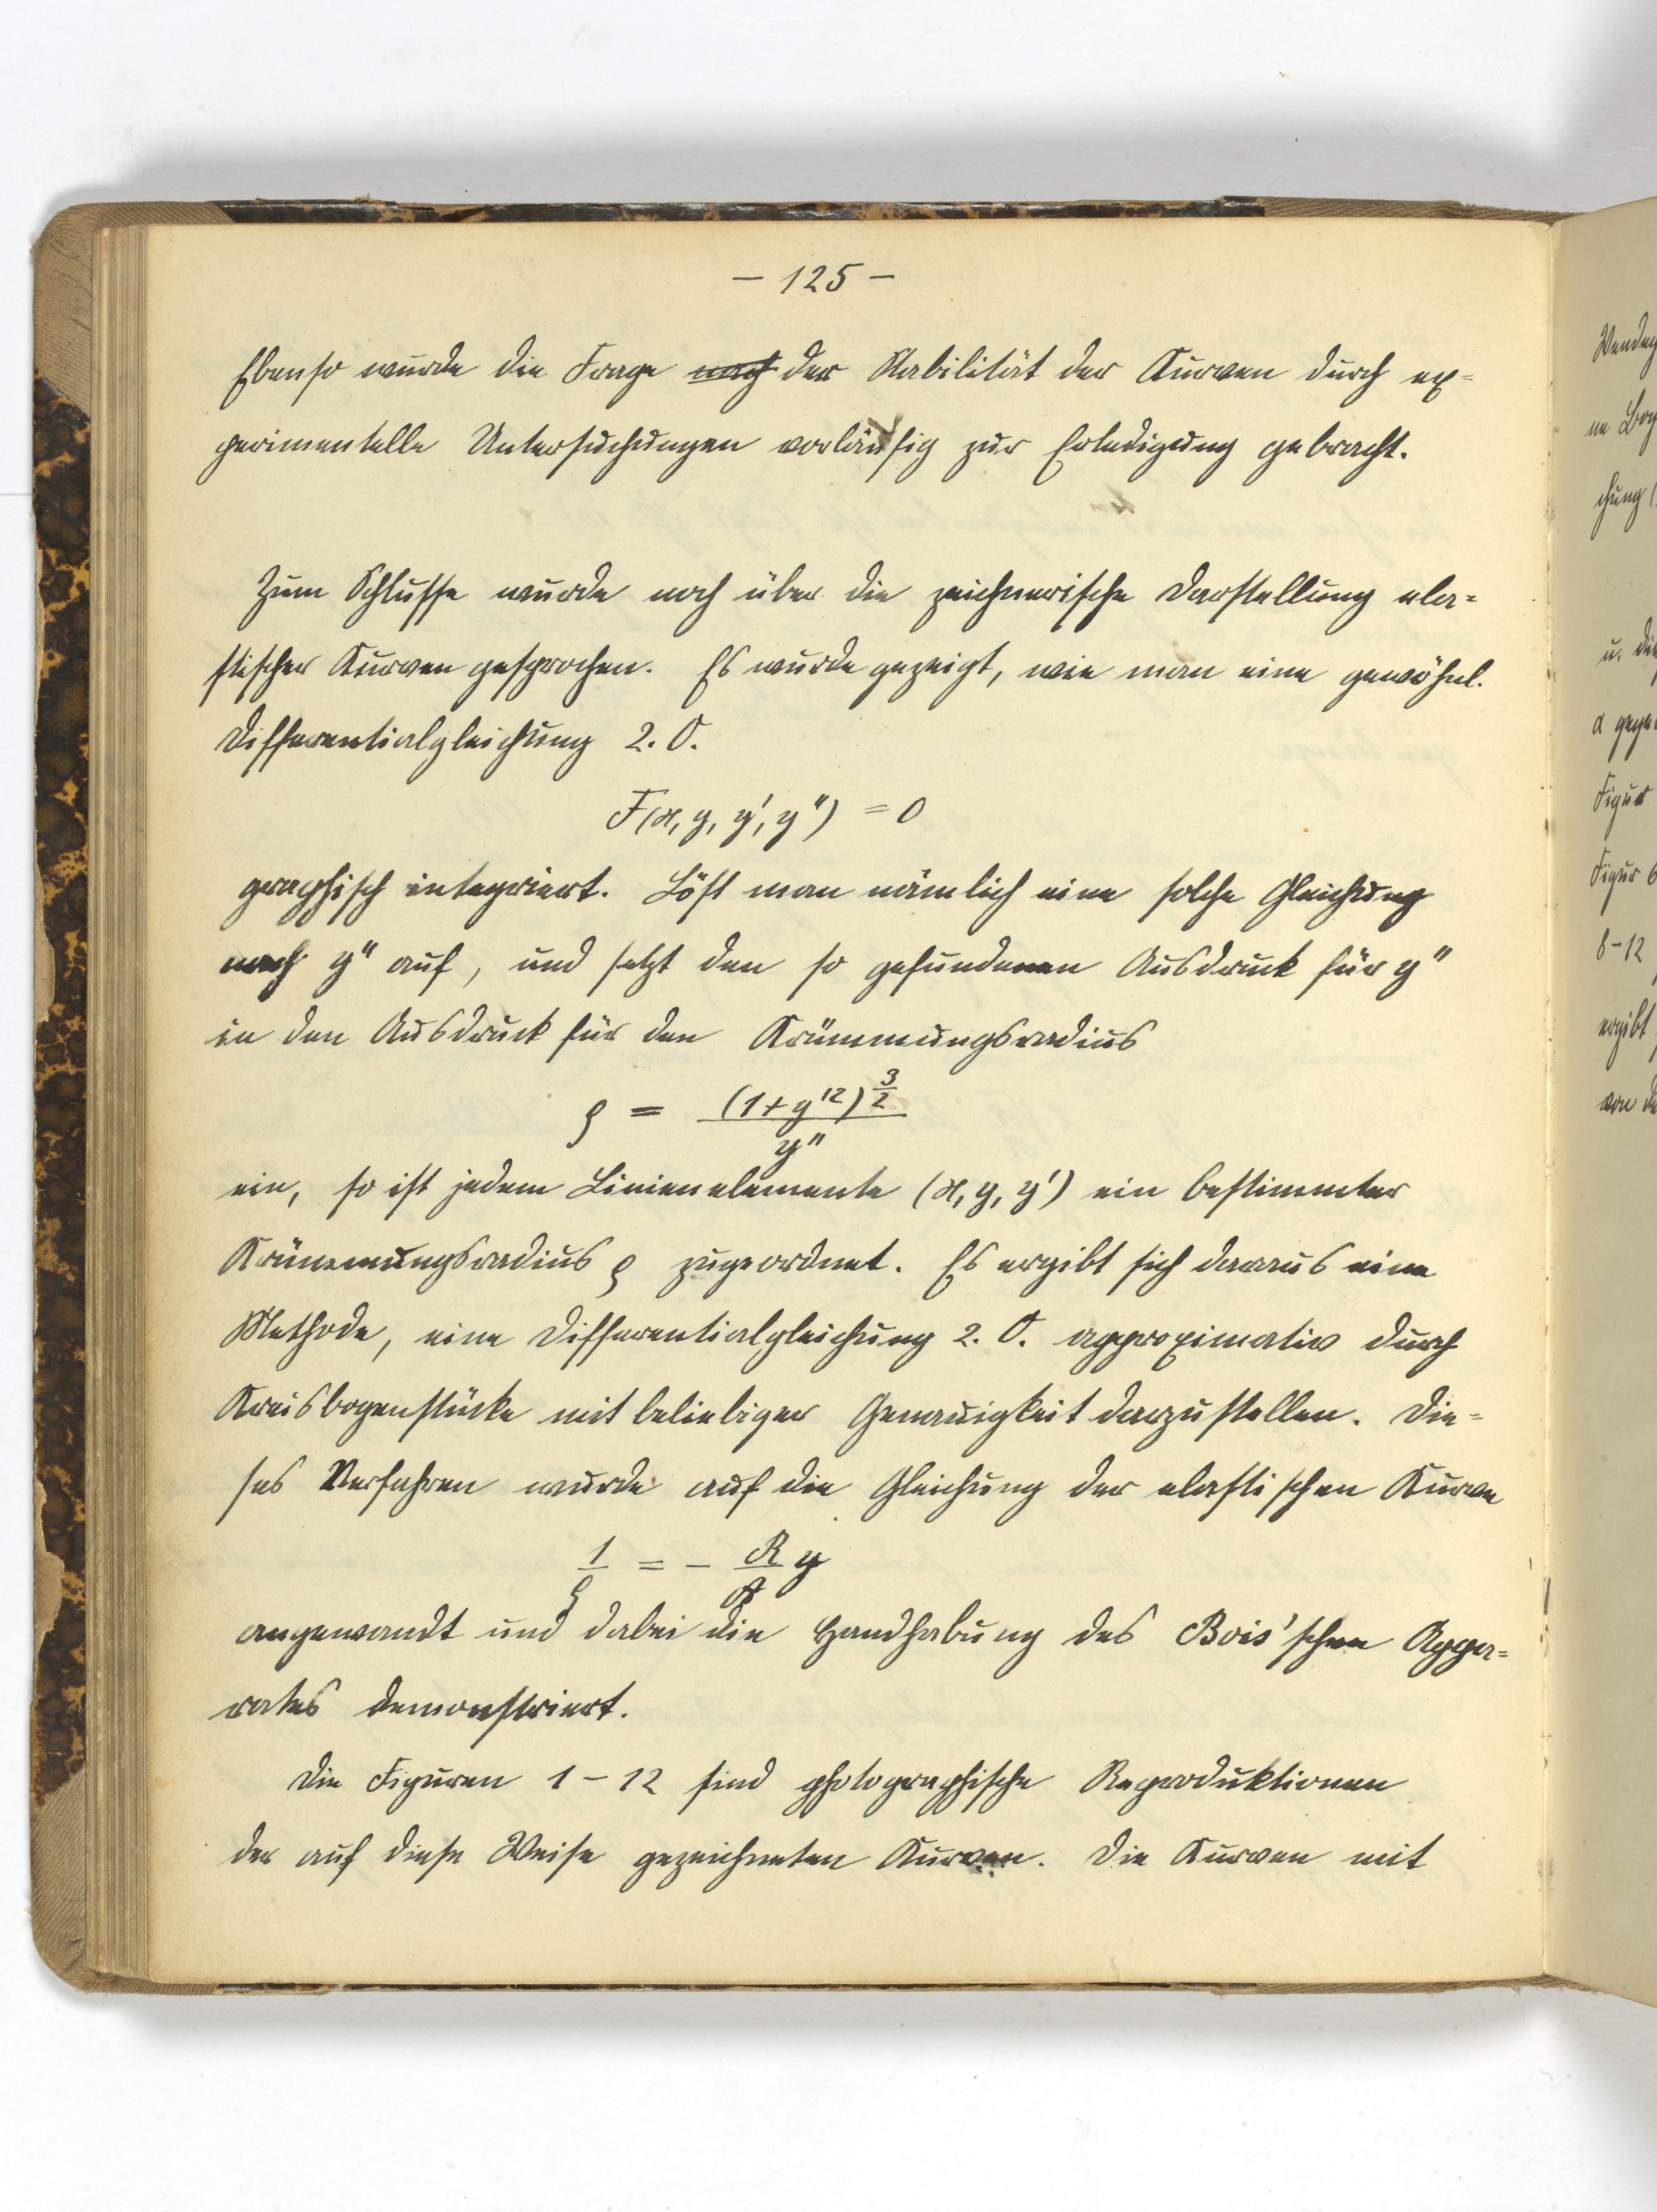 – 125 –
Ebenso wurde die Frage nach der Stabilität der Kurven durch ex-
perimentelle Untersuchungen vorläufig zur Erledigung gebracht.
Zum Schlusse wurde noch über die zeichnerische Darstellung ela-
stischer Kurven gesprochen. Es wurde gezeigt, wie man eine gewöhnl.
Differentialgleichung 2. O.
F(x, y, y', y'') = 0
graphisch integriert. Löst man nämlich eine solche Gleichung
nach y'' auf, und setzt den so gefundenen Ausdruck für y''
in den Ausdruck für den Krümmungsradius
ρ = (1+y'²)^(3/2) / y''
ein, so ist jedem Linienelemente (x, y, y') ein bestimmter
Krümmungsradius ρ zugeordnet. Es ergibt sich daraus eine
Methode, eine Differentialgleichung 2. O. approximativ durch
Kreisbogenstücke mit beliebiger Genauigkeit darzustellen. Die-
ses Verfahren wurde auf die Gleichung der elastischen Kurve
1/ρ = – R/A y
angewandt und dabei die Handhabung des Bois'schen Appa-
rates demonstriert.
Die Figuren 1–12 sind photographische Reproduktionen
der auf diese Weise gezeichneten Kurven. Die Kurven mit
u.
α
Figur
Figur 6
8–12
ergibt